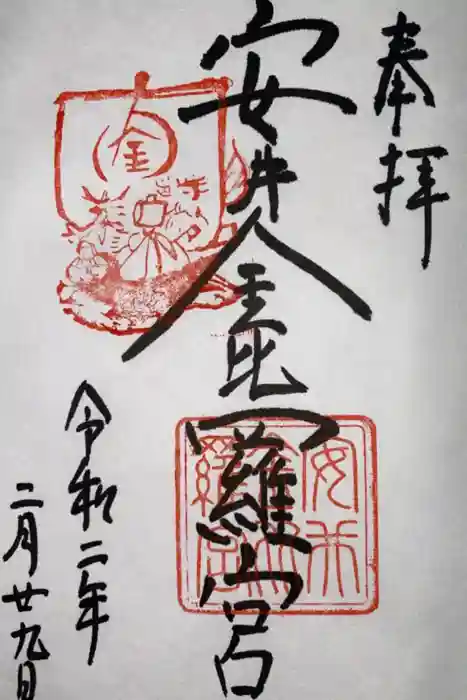 奉拝
安井金比羅宮
令和二年
二月廿九日
金